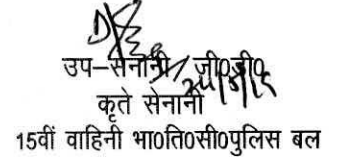 उप–सेनानी, जी0डी0
कृते सेनानी
15वीं वाहिनी भा0ति0सी0पुलिस बल